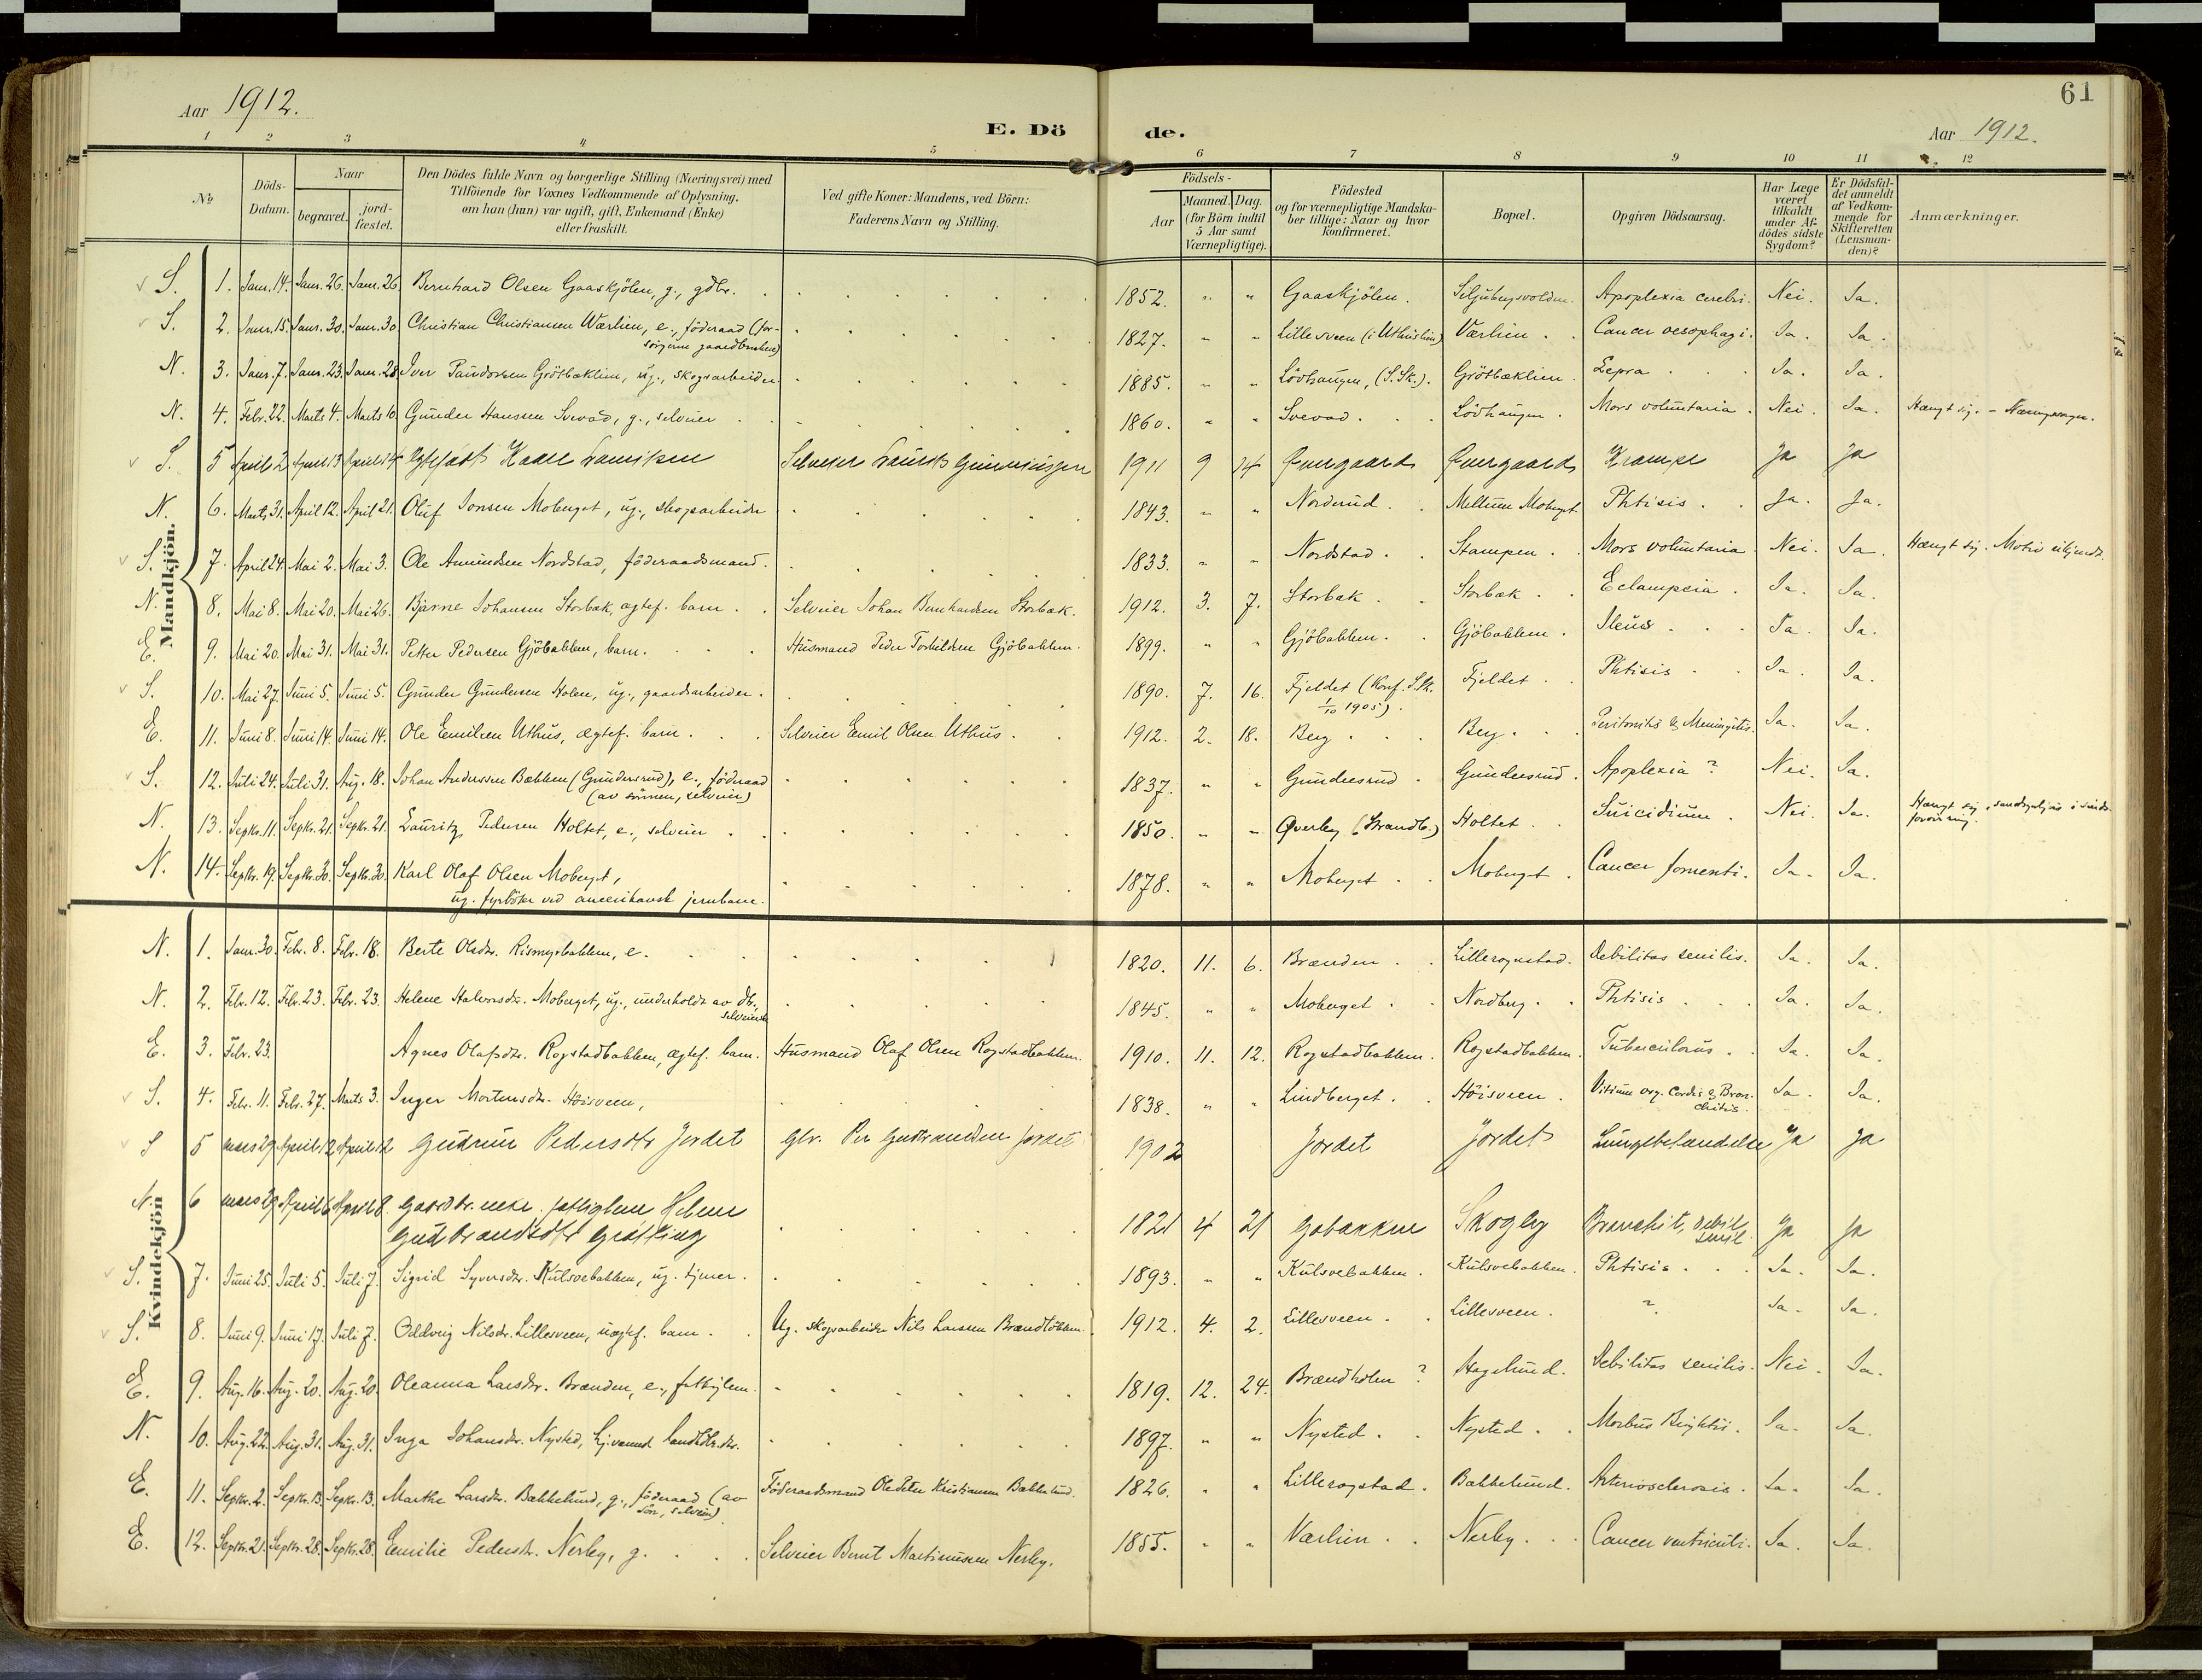 61
Aar 1912.
E. Döde.
Aar 1912.
1 2 3 4 5 6 7 8 9 10 11 12
№
Döds-Datum.
Naar
begravet.
jord-fæstet.
Den Dödes fulde Navn og borgerlige Stilling (Næringsvei) med
Tilföiende for Voxnes Vedkommende af Oplysning,
om han (hun) var ugift, gift, Enkemand (Enke)
eller fraskilt.
Ved gifte Koner: Mandens, ved Börn:
Faderens Navn og Stilling.
Födsels-
Aar
Maaned. Dag.
(for Börn indtil
5 Aar samt
Værnepligtige).
Födested
og for værnepligtige Mandska-
ber tillige: Naar og hvor
konfirmeret.
Bopæl.
Opgiven Dödsaarsag.
Har Læge
været
tilkaldt
under Af-
dödes sidste
Sygdom?
Er Dödsfal-
det anmeldt
af Vedkom-
mende for
Skifteretten
(Lensman-
den)?
Anmærkninger.
Mandkjön.
S. 1. Janr. 14. Janr. 26. Janr. 26. Bernhard Olsen Gaaskjölen, g., gdbr. 1852. " " Gaaskjölen. Apoplexia cerebri. Nei. Ja.
S. 2. Janr. 15. Janr. 30. Janr. 30. Christian Christiansen Værlien, e., föderaad (for-
1827. " " Lillesveen Værlien. Cancer oesophagi. Ja. Ja.
N. 3. Janr. 7. Janr. 23. Janr. 28. Iver Grötbæklien, ug., skogsarbeider 1885. " " Lövhaugen, (S. Sk.). Grötbæklien. Lepra. Ja. Ja.
N. 4. Febr. 22. Marts 4. Marts 10. Gunder Hanssen Svevad, g., selveier 1860. " " Svevad. Lövhaugen. Mors voluntaria. Nei. Ja. Hængt sig.
S. 5 April 2 April 13 April 14 Kaare Selveier Laurits 1911 9 14 Øvergaard Øvergaard Krampe Ja Ja
N. 6. Marts 31. April 12. April 21. Oluf Jonsen Moberget, ug., skogsarbeider 1843. " " Norderud. Mellum Moberget. Phtisis. Ja. Ja.
S. 7. April 24. Mai 2. Mai 3. Ole Amundsen Nordstad, föderaadsmand. 1833. " " Nordstad. Stampen. Mors voluntaria. Nei. Ja. Hængt sig. Motiv ukjendt.
N. 8. Mai 8. Mai 20. Mai 26. Bjarne Johansen Storbæk, ægtef. barn. Selveier Johan Bernhardsen Storbæk. 1912. 3. 7. Storbæk. Storbæk. Eclampsia. Ja. Ja.
E. 9. Mai 20. Mai 31. Mai 31. Petter Pedersen Gjöbakken, barn. Husmand Peder Torkildsen Gjöbakken. 1899. " " Gjöbakken. Gjöbakken. Ileus. Ja. Ja.
S. 10. Mai 27. Juni 5. Juni 5. Gunder Gundersen Holen, ug., gaardsarbeider. 1890. 7. 16. Fjeldet (Konf. S. Sk. Fjeldet. Phtisis. Ja. Ja.
1/10 1905).
E. 11. Juni 8. Juni 14. Juni 14. Ole Emilsen Uthus, ægtef. barn. Selveier Emil Olsen Uthus. 1912. 2. 18. Berg. Berg. Peritonitis & Meningitis. Ja. Ja.
S. 12. Juli 24. Juli 31. Aug. 18. Johan Anderssen Bakken (Gundersrud), e., föderaad 1837. " " Gundersrud. Gundersrud. Apoplexia ? Nei. Ja.
(av sönnen, selveier)
N. 13. Septbr. 11. Septbr. 21. Septbr. 21. Lauritz Pedersen Holtet, e., selveier 1850. " " Øverby (Strandb.) Holtet. Suicidium. Nei. Ja. Hængt sig,
N. 14. Septbr. 19. Septbr. 30. Septbr. 30. Karl Olaf Olsen Moberget, 1878. " " Moberget. Moberget. Cancer Ja. Ja.
ug. fyrböter ved amerikansk jernbane.
Kvindekjön
N. 1. Janr. 30. Febr. 8. Febr. 18. Berte Olsdtr. e. 1820. 11. 6. Brænden. Lillerogstad. Debilitas senilis. Ja. Ja.
N. 2. Febr. 12. Febr. 23. Febr. 23. Helene Halvorsdtr. Moberget, ug., underholdt av db., 1845. " " Moberget. Nordberg. Phtisis. Ja. Ja.
E. 3. Febr. 23. Agnes Olafsdtr. Rogstadbakken, ægtef. barn. Husmand Olaf Olsen Rogstadbakken. 1910. 11. 12. Rogstadbakken. Rogstadbakken. Tuberculosis. Ja. Ja.
S. 4. Febr. 11. Febr. 27. Marts 3. Inger Mortensdtr. Höisveen, 1838. " " Lindberget. Höisveen. Vitium org. Cordis & Bron-
chitis. Ja. Ja.
S 5 mars 29 April 12 April 12 Gudrun Pedersdtr Jordet Gbr. Per Gudbrandsen Jordet 1902 Jordet Jordet Lungebetændelse Ja Ja
N. 6 mars 29 April 6 April 8 Gaardbr. enke. fattiglem Helene
Gudbrandsdtr Grötting 1821 4 21 Gobakken Skogly Bronchit, debil. senil. Ja Ja
S. 7. Juni 25. Juli 5. Juli 7. Sigrid Syversdtr. Kulsvebakken, ug. tjener. 1893. " " Kulsvebakken. Kulsvebakken. Phtisis. Ja. Ja.
S. 8. Juni 9. Juni 17. Juli 7. Oddveig Nilsdtr. Lillesveen, uægtef. barn. Ug. skogsarbeider Nils Larssen 1912. 4. 2. Lillesveen. Lillesveen. ?. Ja. Ja.
E. 9. Aug. 16. Aug. 20. Aug. 20. Oleanna Larsdtr. Brænden, e., fattiglem. 1819. 12. 24. Brændholen ? Hagelund. Debilitas senilis. Nei. Ja.
N. 10. Aug. 22. Aug. 31. Aug. 31. Inga Johansdtr. Nysted, 1897. " " Nysted. Nysted. Morbus Brightii. Ja. Ja.
E. 11. Septbr. 2. Septbr. 13. Septbr. 13. Marthe Larsdtr. Bakkelund, g., föderaad (av Föderaadsmand Ole Peter Kristiansen Bakkelund. 1826. " " Lillerogstad. Bakkelund. Arteriosclerosis. Ja. Ja.
sön, selveier)
E. 12. Septbr. 21. Septbr. 28. Septbr. 28. Emilie Pedersdtr. Nerby, g. Selveier Bernt Martinussen Nerby. 1855. " " Værlien. Nerby. Cancer ventriculi. Ja. Ja.